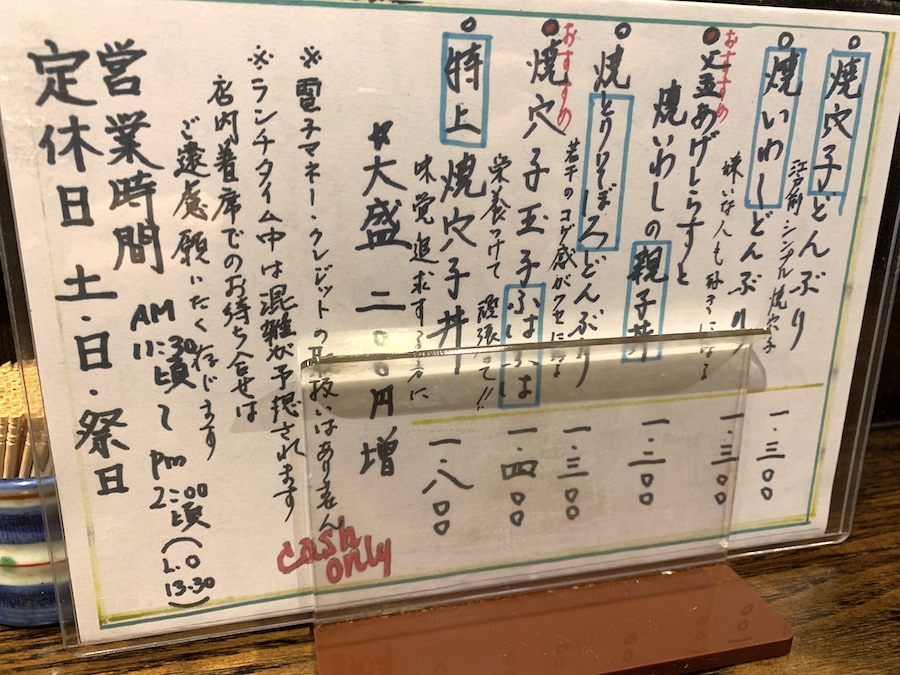 焼穴子どんぶり
江戸前・シンプル焼穴子
一.三〇〇
焼いわしどんぶり
嫌いな人も好きになる
一.三〇〇
おすすめ
上釜あげしらすと
焼いわしの親子丼
一.二〇〇
焼とりそぼろどんぶり
若干のコゲ感がクセになる
一.三〇〇
おすすめ
焼穴子玉子ふはふは
栄養つけて 頑張って!!
一.四〇〇
特上焼穴子丼
味覚追求する方に
一.八〇〇
大盛 二〇〇円増
※電子マネー・クレジットの取扱いはありません
cash only
※ランチタイム中は混雑が予想されます
店内着席でのお待ち合せは
ご遠慮願いたく存じます
営業時間 AM 11:30頃〜pm 2:00頃(L.O 13.30)
定休日 土・日・祭日